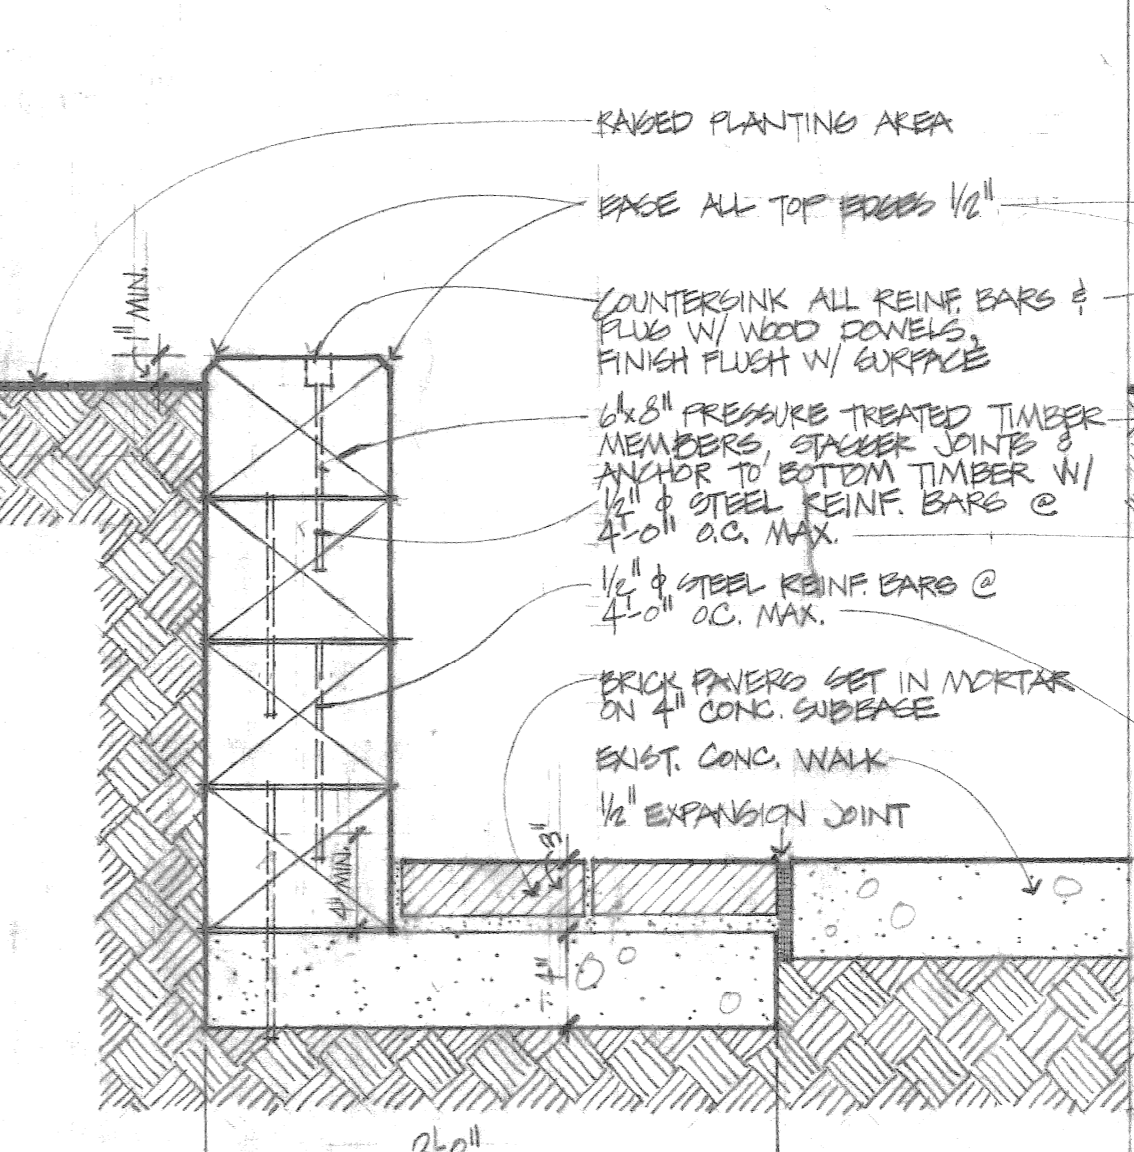 RAISED PLANTING AREA
EASE ALL TOP EDGES 1/2"
1" MIN.
COUNTERSINK ALL REINF. BARS &
PLUG W/ WOOD DOWELS,
FINISH FLUSH W/ SURFACE
6"x8" PRESSURE TREATED TIMBER
MEMBERS, STAGGER JOINTS &
ANCHOR TO BOTTOM TIMBER W/
1/2" ϕ STEEL REINF. BARS @
4'-0" O.C. MAX.
1/2" ϕ STEEL REINF. BARS @
4'-0" O.C. MAX.
BRICK PAVERS SET IN MORTAR
ON 4" CONC. SUBBASE
EXIST. CONC. WALK
1/2" EXPANSION JOINT
3"
4" MIN.
4"